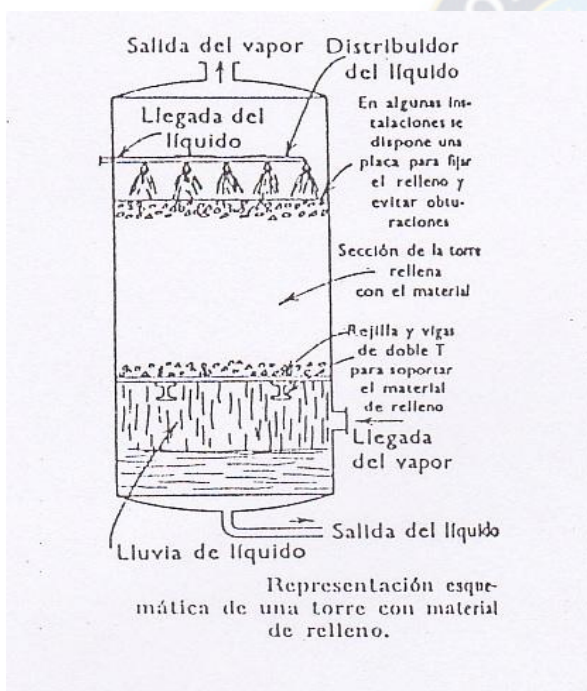 Salida del vapor
Distribuidor
del líquido
Llegada del
líquido
En algunas ins-
talaciones se
dispone una
placa para fijar
el relleno y
evitar obtu-
raciones
Sección de la torre
rellena
con el material
Rejilla y vigas
de doble T
para soportar
el material
de relleno
Llegada
del vapor
Salida del líquido
Lluvia de líquido
Representación esque-
mática de una torre con material
de relleno.